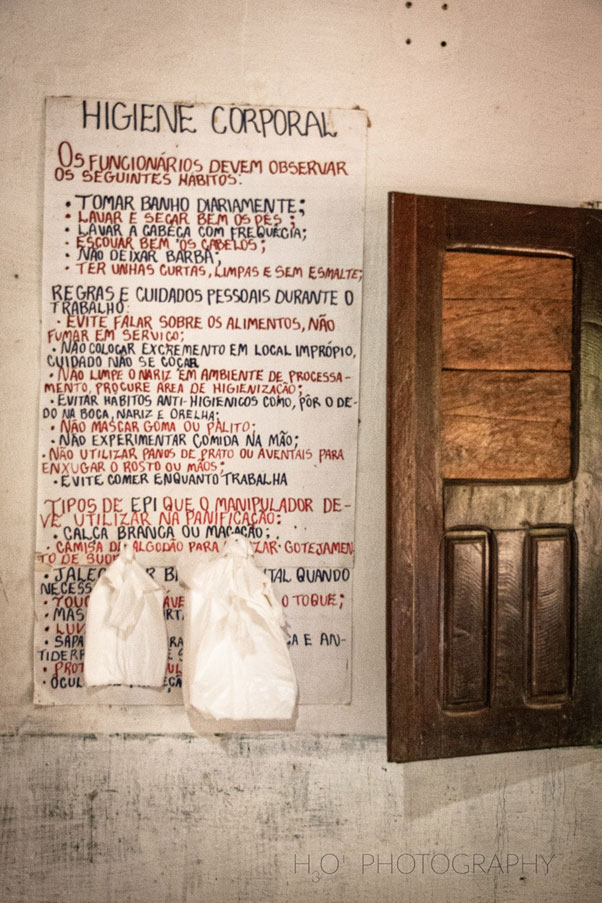 HIGIENE CORPORAL
OS FUNCIONÁRIOS DEVEM OBSERVAR
OS SEGUINTES HÁBITOS:
• TOMAR BANHO DIARIAMENTE;
• LAVAR E SECAR BEM OS PÉS;
• LAVAR A CABEÇA COM FREQUÊCIA;
• ESCOVAR BEM OS CABELOS;
• NÃO DEIXAR BARBA;
• TER UNHAS CURTAS, LIMPAS E SEM ESMALTE;
REGRAS E CUIDADOS PESSOAIS DURANTE O
TRABALHO:
• EVITE FALAR SOBRE OS ALIMENTOS, NÃO
FUMAR EM SERVIÇO;
• NÃO COLOCAR EXCREMENTO EM LOCAL IMPRÓPIO,
CUIDADO NÃO SE COÇAR
• NÃO LIMPE O NARIZ EM AMBIENTE DE PROCESSA-
MENTO, PROCURE ÁREA DE HIGIENIZAÇÃO;
• EVITAR HABITOS ANTI-HIGIENICOS COMO, POR O DE-
DO NA BOCA, NARIZ E ORELHA;
• NÃO MASCAR GOMA OU PALITO;
• NÃO EXPERIMENTAR COMIDA NA MÃO;
• NÃO UTILIZAR PANOS DE PRATO OU AVENTAIS PARA
ENXUGAR O ROSTO OU MÃOS;
• EVITE COMER ENQUANTO TRABALHA
TIPOS DE EPI QUE O MANIPULADOR DE-
VE UTILIZAR NA PANIFICAÇÃO:
• CALÇA BRANCA OU MACACÃO;
• CAMISA DE ALGODÃO PARA GOTEJAMEN
TO DE
• QUANDO
O TOQUE;
E AN-
H3O+ PHOTOGRAPHY